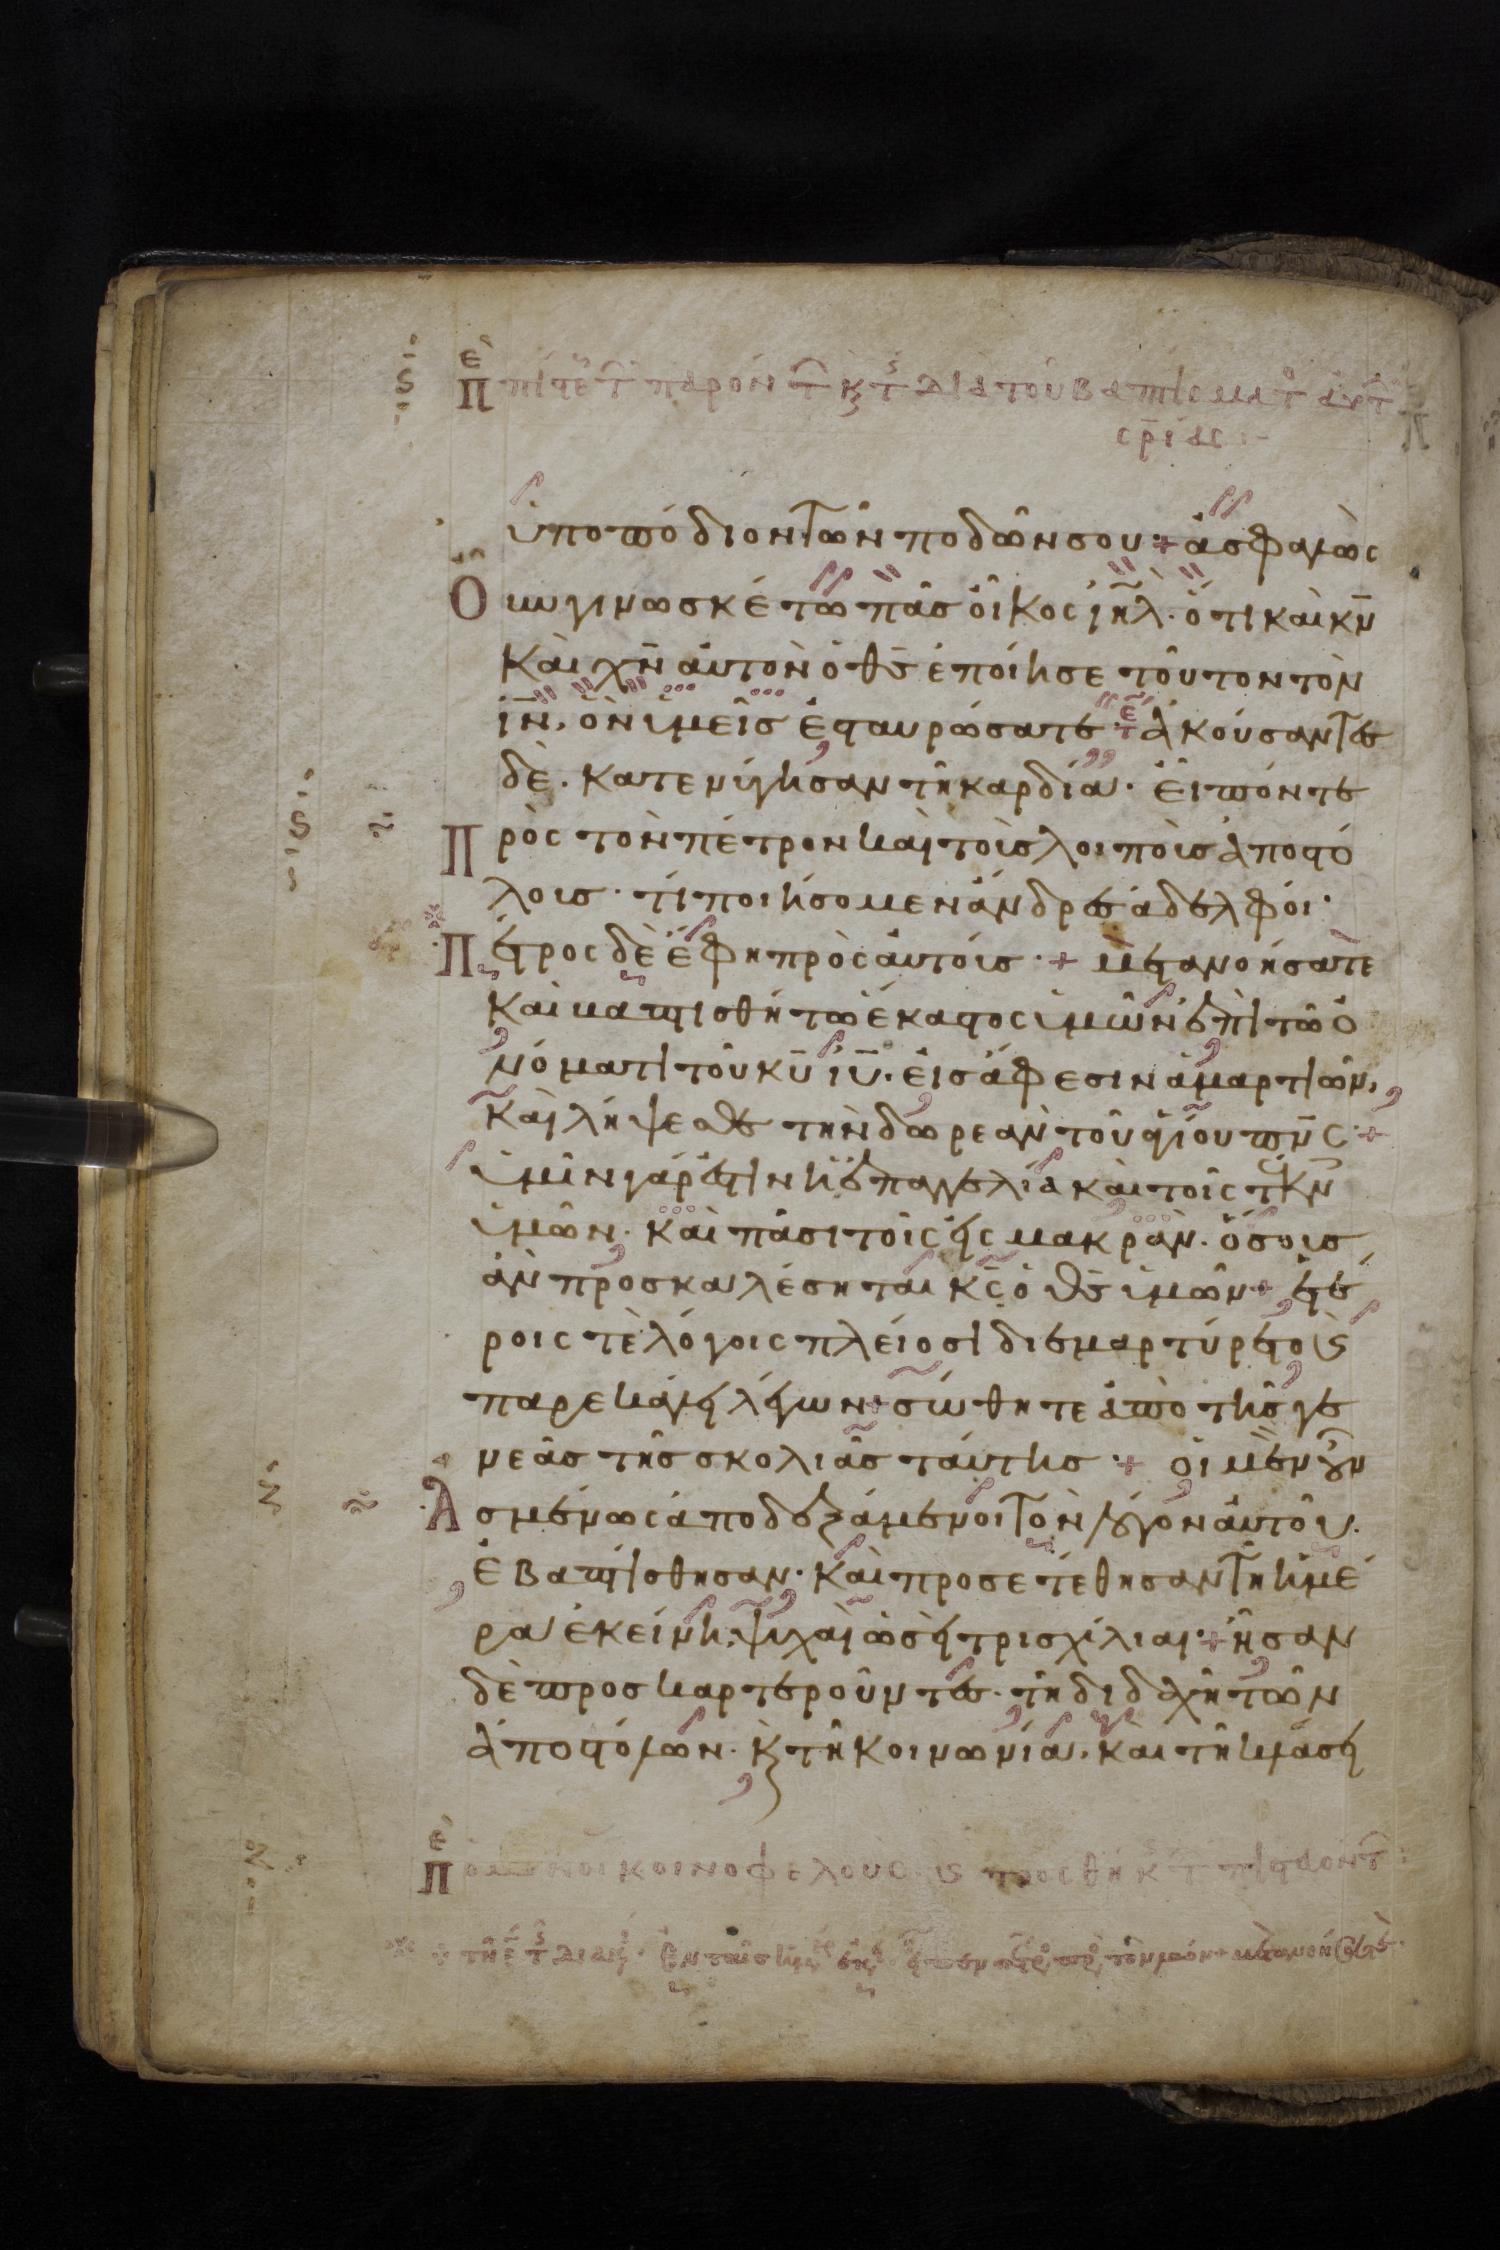 ὑποπόδιον τῶν ποδῶν σου + ἀσφαλῶς
Οὖν γινωσκέτω πᾶς οἶκος ιηλ̅. ὅτι καὶ κν̅
καὶ χν̅ αὐτὸν ὁ θς̅ ἐποίησε τοῦτον τὸν
ιν̅. ὃν ὑμεῖς ἐσταυρώσατε· ἀκούσαντες
δὲ. κατενύγησαν τῆ καρδία. εἰπόντες
Πρὸς τὸν πέτρον καὶ τοὺς λοιποὺς ἀποστό
λους. τί ποιήσομεν ἄνδρες ἀδελφοί.
Πέτρος δὲ ἔφη πρὸς αὐτούς. + μετανοήσατε
καὶ βαπτισθήτω ἕκαστος ὑμῶν ἐπὶ τῶ ὀ
νόματι τοῦ κυ̅ ιυ̅. εἰς ἄφεσιν ἁμαρτιῶν.
καὶ λήψεσθε τὴν δωρεὰν τοῦ ἁγίου πνς̅ +
ὑμῖν γάρ ἐστιν ἡ ἐπαγγελία καὶ τοῖς τέκν
ὑμῶν. καὶ πᾶσι τοῖς εἰς μακρὰν. ὅσους
ἂν προσκαλέσηται κς̅ ὁ θς̅ ὑμῶν + ἑτέ
ροις τὲ λόγοις πλείοσι διεμαρτύρετο ϗ
παρεκάλει λέγων + σώθητε ἀπὸ τῆς γε
νεᾶς τῆς σκολιᾶς ταύτης + οἱ μὲν οὖν
Ἀσμένως ἀποδεξάμενοι τὸν λόγον αὐτοῦ.
ἐβαπτίσθησαν. καὶ προσετέθησαν τῆ ἡμέ
ρα ἐκείνη, ψυχαὶ ὡσεὶ τρισχίλιαι + ἦσαν
δὲ προσκαρτεροῦντες. τῆ διδαχῆ τῶν
ἀποστόλων. ϗ τῆ κοινωνία. καὶ τῆ κλάσει